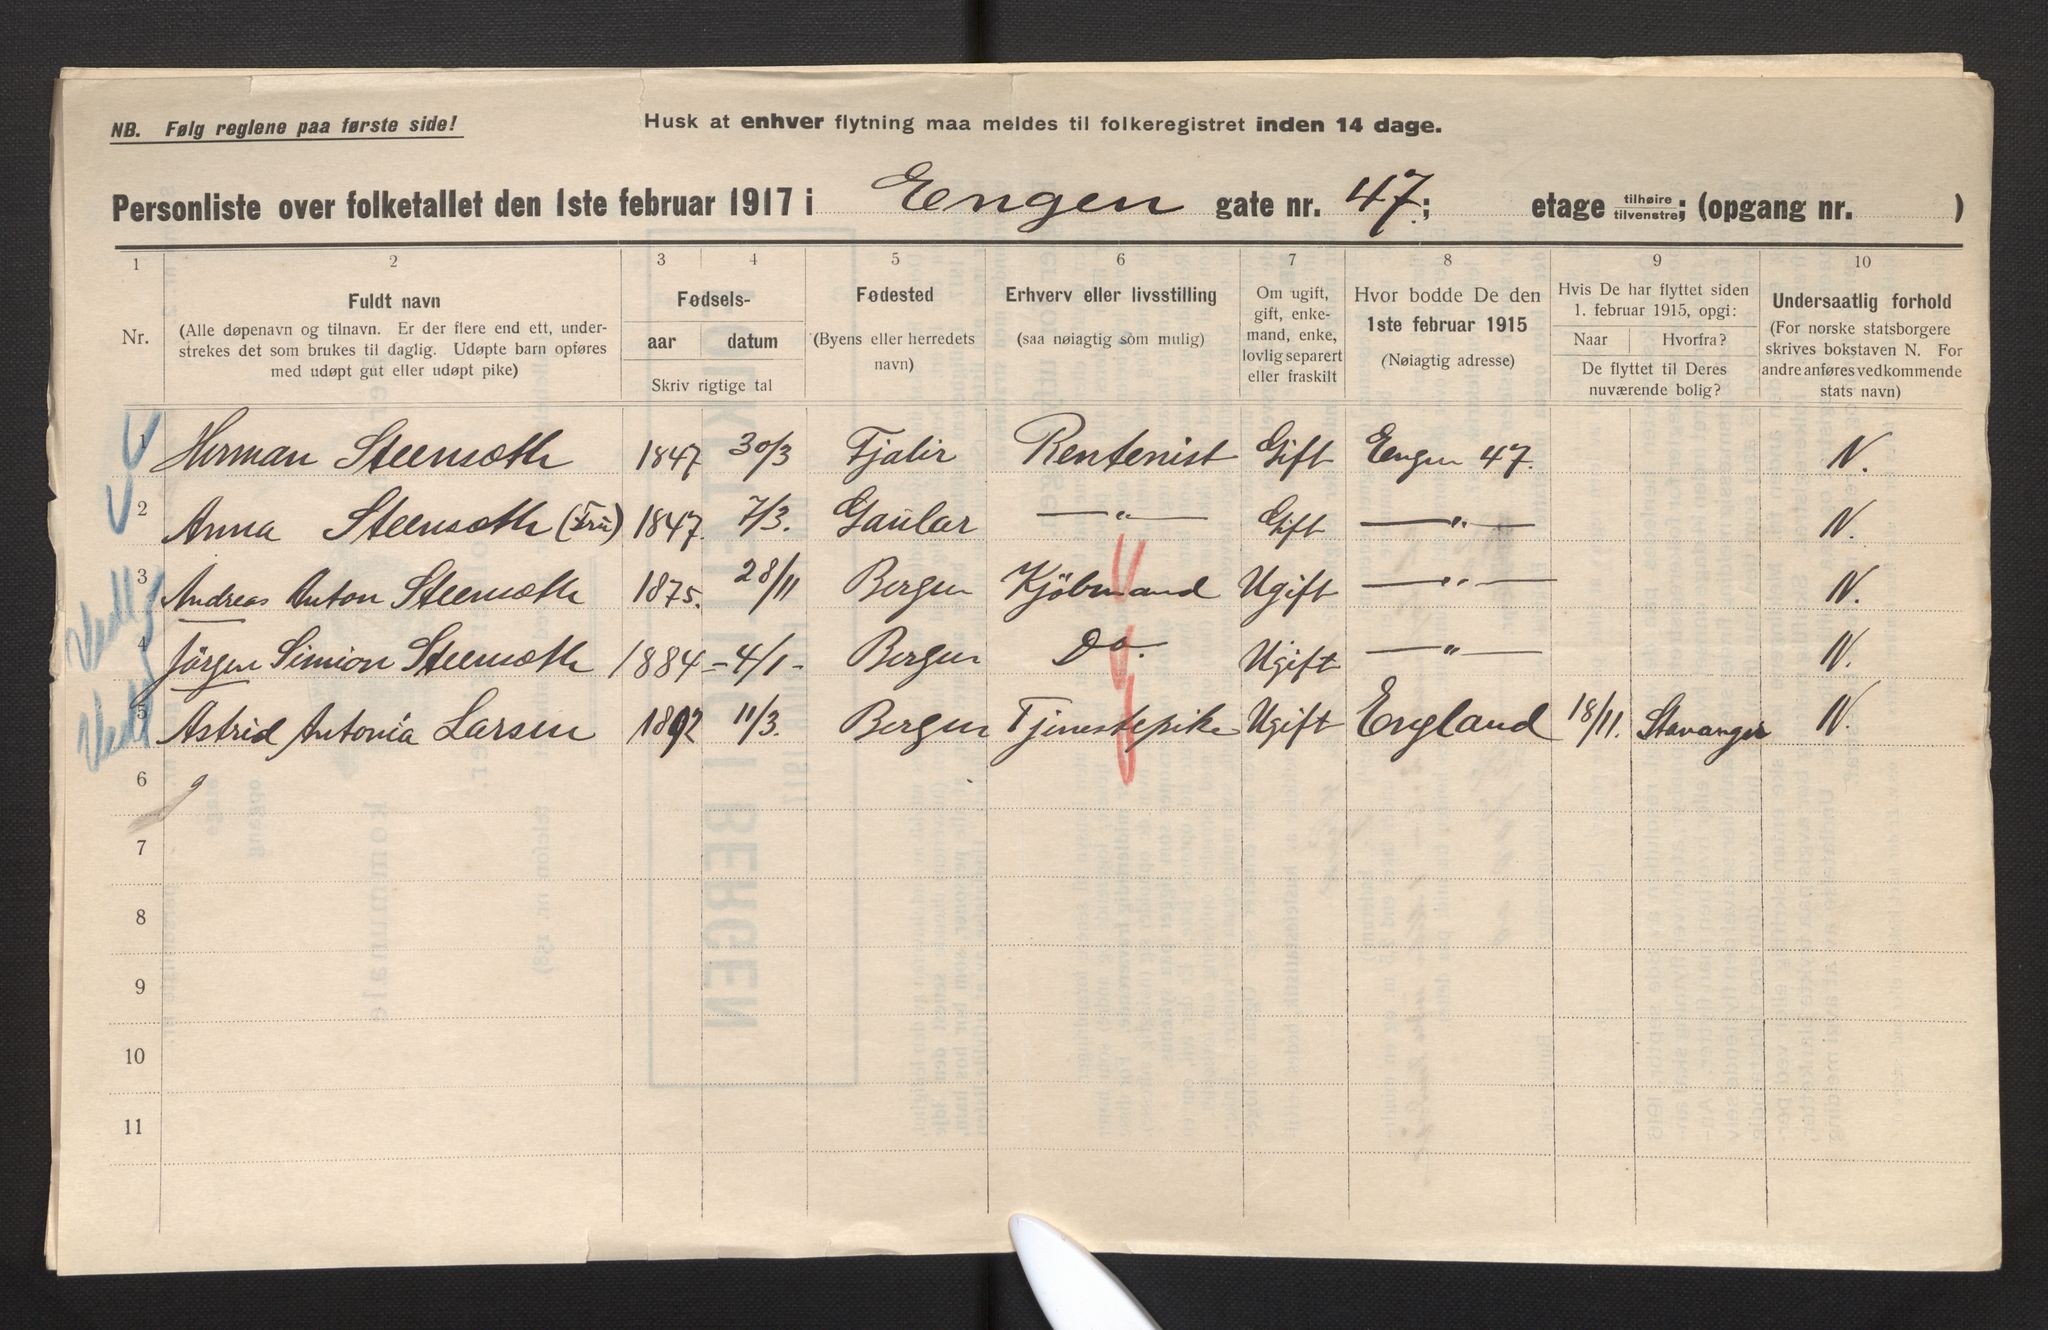 NB. Følg reglene paa første side!
Husk at enhver flytning maa meldes til folkeregistret inden 14 dage.
Personliste over folketallet den 1ste februar 1917 i Engen gate nr. 47.; etage tilhøire tilvenstre; (opgang nr. )
1 2 3 4 5 6 7 8 9 10
Nr.
Fuldt navn
(Alle døpenavn og tilnavn. Er der flere end ett, under-
strekes det som brukes til daglig. Udøpte barn opføres
med udøpt gut eller udøpt pike)
Fødsels-
aar datum
Skriv rigtige tal
Fødested
(Byens eller herredets
navn)
Erhverv eller livsstilling
(saa nøiagtig som mulig)
Om ugift,
gift, enke-
mand, enke,
lovlig separert
eller fraskilt
Hvor bodde De den
1ste februar 1915
(Nøiagtig adresse)
Hvis De har flyttet siden
1. februar 1915, opgi:
Naar Hvorfra?
De flyttet til Deres
nuværende bolig?
Undersaatlig forhold
(For norske statsborgere
skrives bokstaven N. For
andre anføres vedkommende
stats navn)
1 Herman Steensæth 1847 30/3 Fjalir Rentenist Gift Engen 47. N.
2 Anna Steensæth (Fru) 1847. 7/3. Gaular —"— Gift —"— N.
3 Andreas Anton Steensæth 1875. 28/11 Bergen Kjöbmand Ugift —"— N.
4 Jörgen Simion Steensæth 1884 - 4/1 - Bergen Do. Ugift —"— N.
5 Astrid Antonia Larsen 1892 11/3. Bergen Tjenestepike Ugift England 18/11. Stavanger N.
6
7
8
9
10
11